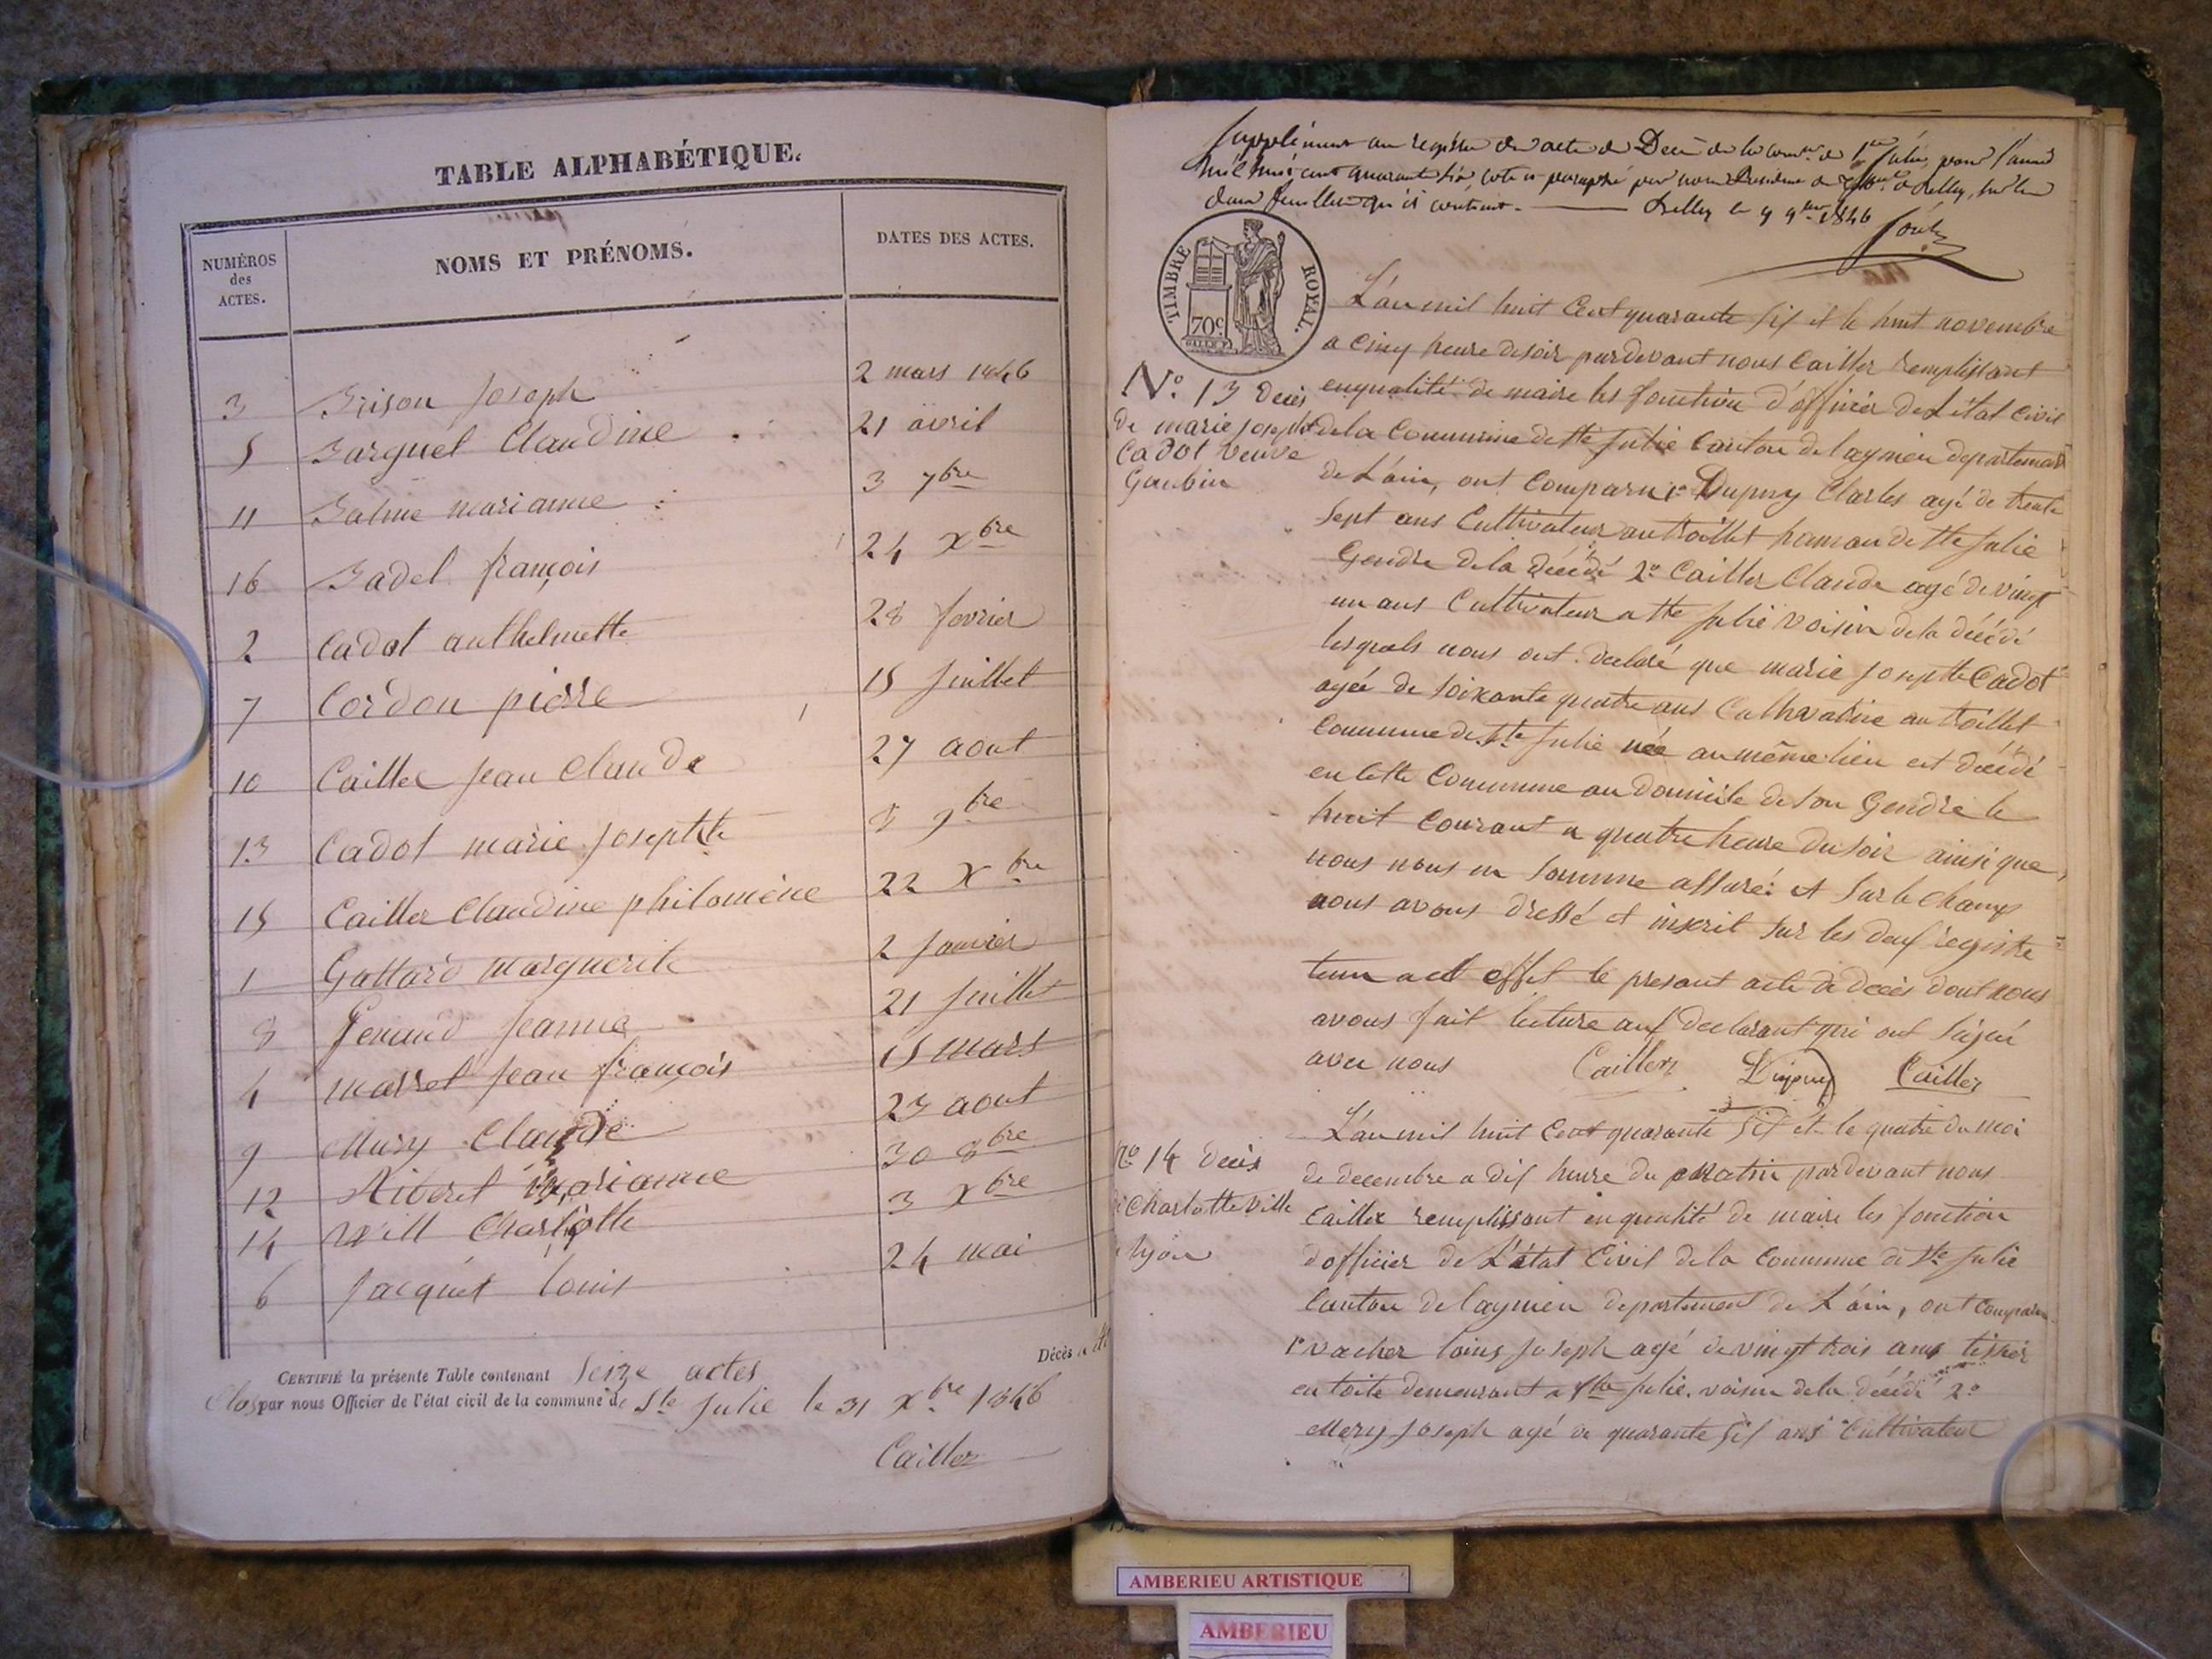 TABLE ALPHABÉTIQUE.
NUMÉROS des ACTES.
NOMS ET PRÉNOMS.
DATES DES ACTES.
3 Brison Joseph 2 mars 1846
5 Barquel Claudine 21 avril
11 Balme marianne 3 7bre
16 Badel françois 24 Xbre
2 Cadot anthelmette 28 fevrier
7 Cordon pierre 15 Juillet
10 Cailler Jean Claude 27 aout
13 Cadot marie Josephte 8 9bre
15 Cailler Claudine philomène 22 Xbre
1 Gottard marguerite 2 Janvier
8 Genaud Jeanne 21 Juillet
4 marret Jean françois 15 mars
9 Mury Claude 23 aout
12 Riberet marianne 30 8bre
14 Vill Charlotte 3 Xbre
6 Jacquet louis 24 mai
Décès
CERTIFIÉ la présente Table contenant Seize actes
Clos par nous Officier de l'état civil de la commune de Ste Julie le 31 Xbre 1846
Cailler
Supplément au registre des actes de Décès de la comne de Ste Julie, pour l'année
mil huit cent quarante six, coté et paraphé par nous
deux feuillets qu'il contient. Belley le 4 9bre 1846
TIMBRE ROYAL.
70c.
L'an mil huit Cent quarante six et le huit novembre
a Cinq heure du soir pardevant nous Cailler remplissant
N° 13 Decès
de marie Josephte
Cadot veuve
Goubin
en qualité de maire les fonction d'officier de L'état Civil
de la Commune de Ste Julie Canton de lagnieu departement
de L'ain, ont Comparu 1° Dupuy Charles agé de trente
Sept ans Cultivateur au trollet hamau de Ste Julie
Gendre de la décédé 2° Cailler Claude agé de vingt
un ans Cultivateur a Ste Julie voisin de la décédé
lesquels nous ont declaré que marie Josephte Cadot
agée de soixante quatre ans Cultivatrice au trollet
Commune de Ste Julie née au même lieu est décédé
en cette Commune au domicile de son Gendre le
huit Courant a quatre heure du soir ainsi que
nous nous en somme assuré: et Sur le Champ
nous avons dressé et inscrit sur les deux registre
tenu a cet effet le presant acte de décès dont nous
avons fait lecture aux declarant qui ont signé
avec nous Cailler Dupuy Cailler
L'an mil huit Cent quarante six et le quatre du moi
N° 14 Decès
de Charlotte Ville
lyon
de decembre a dix heure du matin pardevant nous
Cailler remplissant en qualité de maire les fonction
d'officier de L'état Civil de la Commune de Ste Julie
Canton de lagnieu departement de L'ain, ont Comparu
1° vacher louis Joseph agé de vingt trois ans tissier
en toile demeurant a Ste Julie. voisin de la décédé 2°
Mery Joseph agé de quarante six ans Cultivateur
AMBERIEU ARTISTIQUE
AMBERIEU